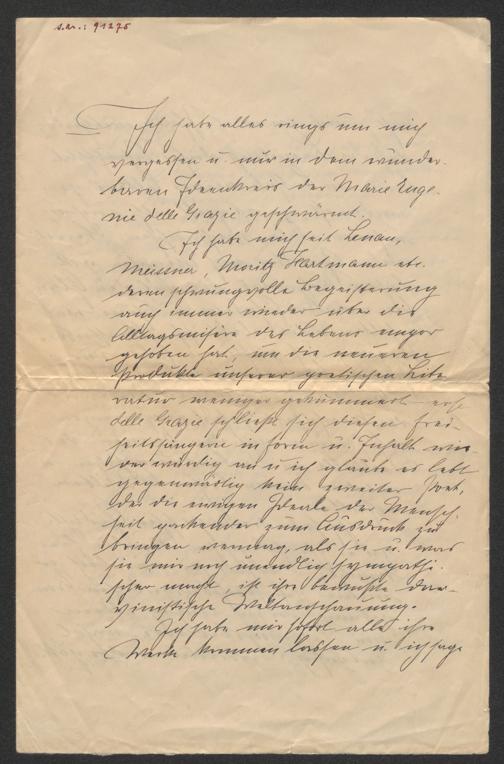 I.N.: 91276
Ich habe alles rings um mich
vergessen u. nur in dem wunder-
baren Ideenkreis der Marie Euge-
nie delle Grazie geschwärmt.
Ich habe mich seit Lenau,
Meissner, Moritz Hartmann etc.
deren schwungvolle Begeisterung
auch immer wieder über die
Alltagsmisère des Lebens empor
gehoben hat, um die neueren
Produkte unserer poetischen Lite
ratur weniger gekümmert – erst
delle Grazie schließt sich diesen Frei-
heitssängern in Form u. Inhalt wie
der würdig an u ich glaube es lebt
gegenwärtig kein zweiter Poet,
der die ewigen Ideale der Mensch-
heit packender zum Ausdruck zu
bringen vermag, als sie u. was
sie mir noch unendlich sympathi-
scher macht, ist ihre bewußte dar-
vinistische Weltanschauung.
Ich habe mir sofort alle ihre
Werke kommen lassen u. ich sage